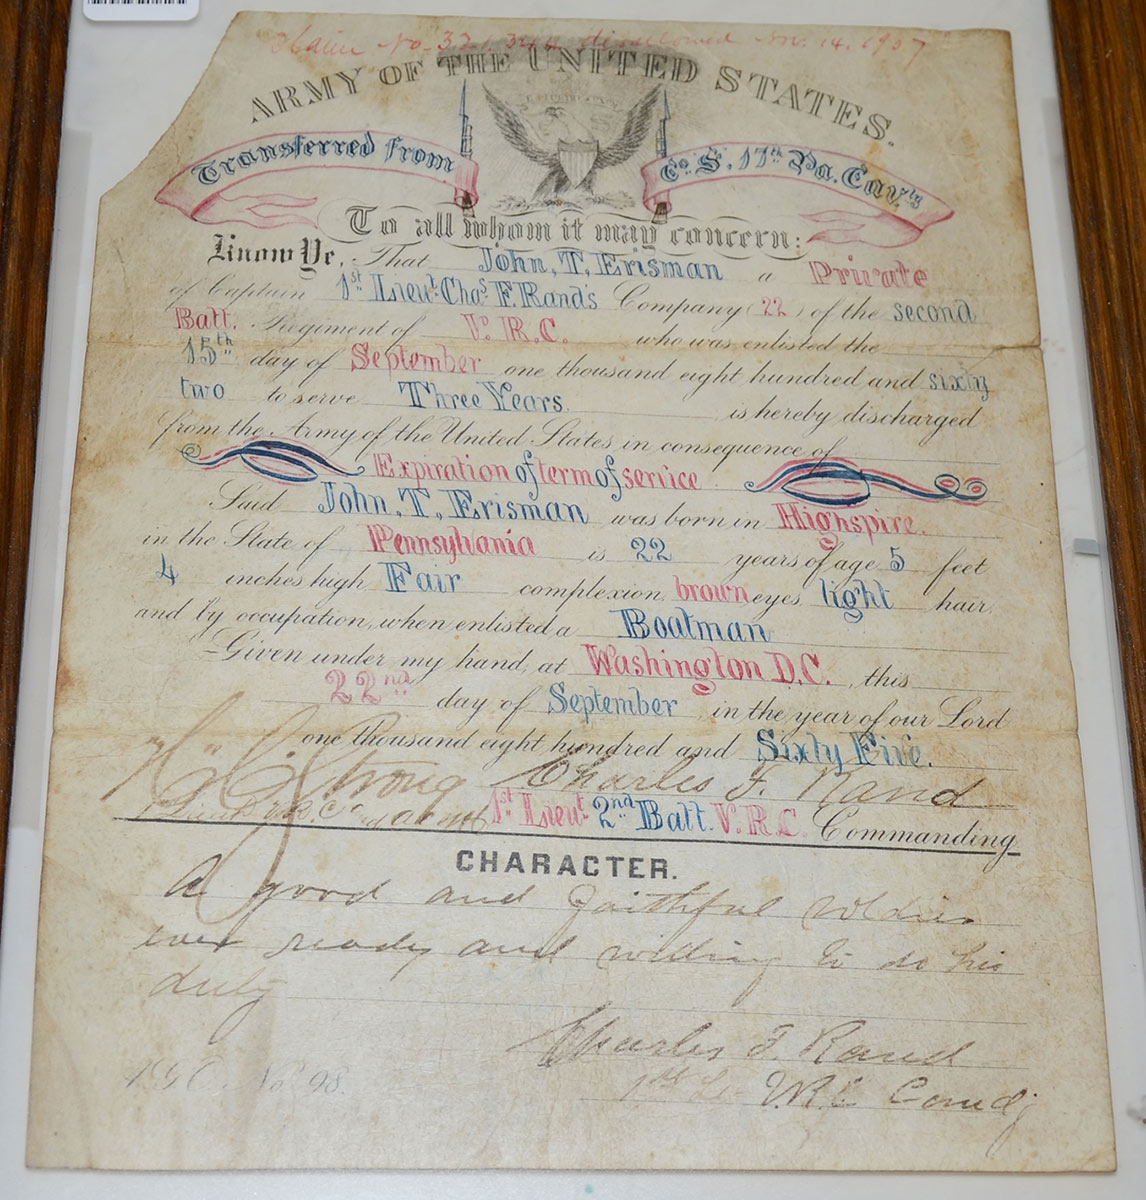 Claim No. disallowed Nov. 14. 1907
ARMY OF THE UNITED STATES.
Transferred from Co. S. 17th Pa. Cavty
To all whom it may concern:
Know Ye, That John, T, Erisman a Private
of Captain 1st Lieut. Chas F. Rand's Company (22) of the second
Batt. Regiment of V. R. C. who was enlisted the
15th day of September one thousand eight hundred and sixty
two to serve Three Years. is hereby discharged
from the Army of the United States in consequence of
Expiration of term of service
Said John, T, Erisman was born in Highspire.
in the State of Pennsylvania is 22 years of age 5 feet
4 inches high Fair complexion, brown eyes, light hair,
and by occupation, when enlisted a Boatman
Given under my hand, at Washington D.C. this
22nd day of September, in the year of our Lord
one thousand eight hundred and Sixty Five.
Charles F. Rand
1st Lieut. 2nd Batt. V. R. C. Commanding.
CHARACTER.
A good and faithful soldier
ever ready and willing to do his
duty
Charles F. Rand
1st Lt V.R.C Comdg
A.G.O. No. 98